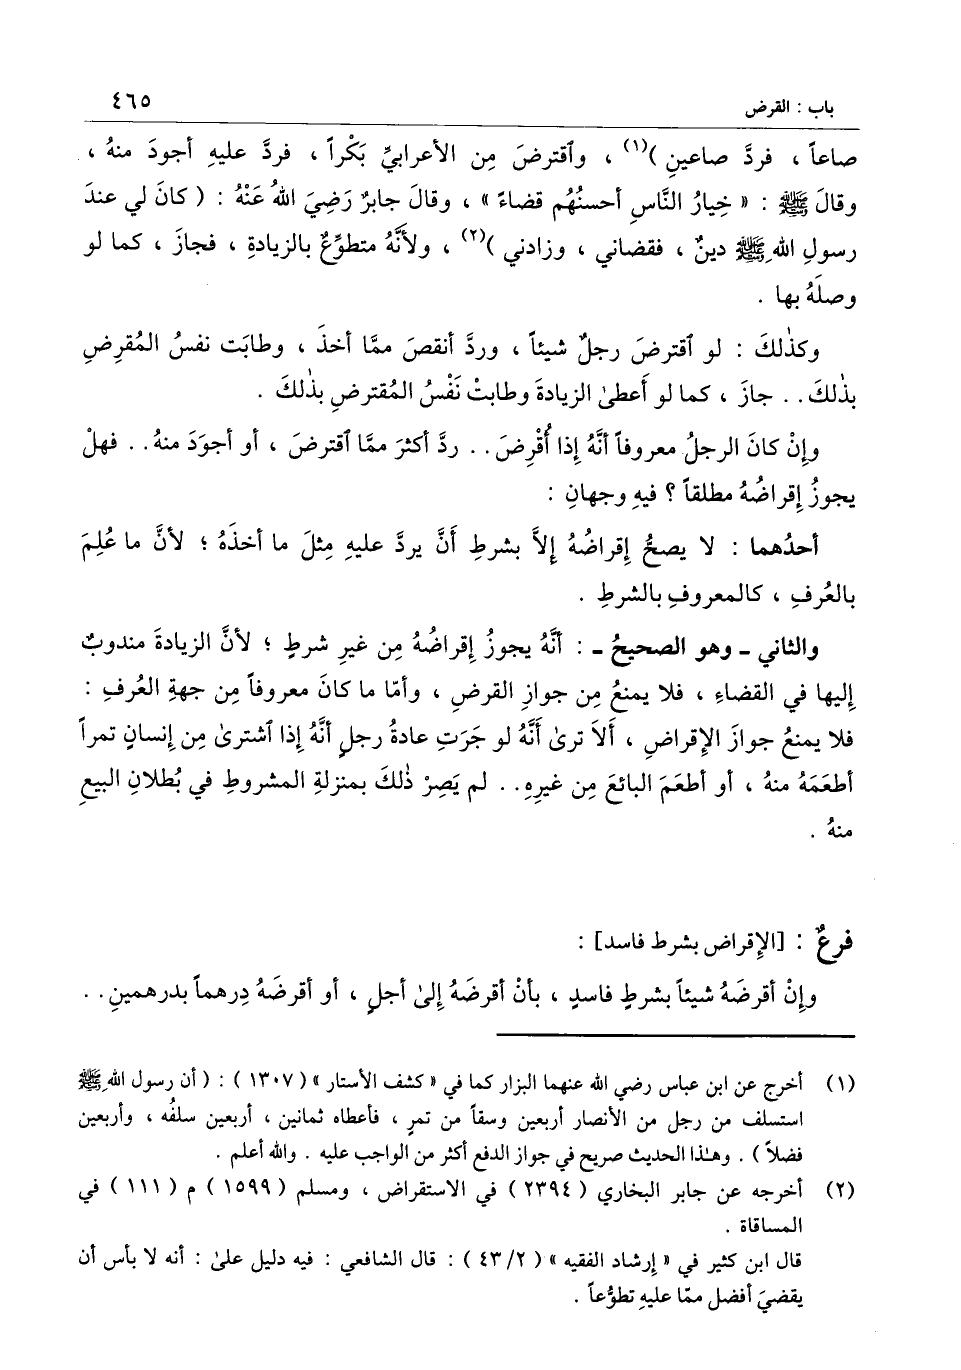 باب : القرض
٤٦٥
صاعاً ، فردَّ صاعينِ )(١) ، وٱقترضَ مِن الأعرابيِّ بَكْراً ، فردَّ عليهِ أجودَ منهُ ،
وقالَ ﷺ : « خِيارُ النَّاسِ أحسنُهُم قضاءً » ، وقالَ جابرٌ رَضِيَ اللهُ عَنْهُ : ( كانَ لي عندَ
رسولِ اللهِ ﷺ دينٌ ، فقضاني ، وزادني )(٢) ، ولأنَّهُ متطوِّعٌ بالزيادةِ ، فجازَ ، كما لو
وصلَهُ بها .
وكذٰلكَ : لو ٱقترضَ رجلٌ شيئاً ، وردَّ أنقصَ ممَّا أخذَ ، وطابَت نفسُ المُقرِضِ
بذٰلكَ . . جازَ ، كما لو أَعطىٰ الزيادةَ وطابتْ نَفْسُ المُقترضِ بذٰلكَ .
وإنْ كانَ الرجلُ معروفاً أنَّهُ إذا أُقْرِضَ . . ردَّ أكثرَ ممَّا ٱقترضَ ، أو أجوَدَ منهُ . . فهلْ
يجوزُ إقراضُهُ مطلقاً ؟ فيهِ وجهانِ :
أحدُهما : لا يصحُّ إقراضُهُ إلاَّ بشرطِ أَنَّ يردَّ عليهِ مِثلَ ما أخذَهُ ؛ لأنَّ ما عُلِمَ
بالعُرفِ ، كالمعروفِ بالشرطِ .
والثاني ـ وهو الصحيحُ ـ : أنَّهُ يجوزُ إقراضُهُ مِن غيرِ شرطٍ ؛ لأنَّ الزيادةَ مندوبٌ
إليها في القضاءِ ، فلا يمنعُ مِن جوازِ القرضِ ، وأمّا ما كانَ معروفاً مِن جهةِ العُرفِ :
فلا يمنعُ جوازَ الإقراضِ ، أَلاَ ترىٰ أَنَّهُ لو جَرَتِ عادةُ رجلٍ أنَّهُ إذا ٱشترىٰ مِن إنسانٍ تمراً
أطعَمَهُ منهُ ، أو أطعَمَ البائعَ مِن غيرِهِ . . لم يَصِرْ ذٰلكَ بمنزلةِ المشروطِ في بُطلانِ البيعِ
منهُ .
فرعٌ : [الإقراض بشرط فاسد] :
وإنْ أقرضَهُ شيئاً بشرطٍ فاسدٍ ، بأنْ أقرضَهُ إلىٰ أجلٍ ، أو أقرضَهُ دِرهماً بدرهمينِ . .
(١) أخرج عن ابن عباس رضي الله عنهما البزار كما في « كشف الأستار » ( ١٣٠٧ ) : ( أن رسول اللهِ ﷺ
استسلف من رجل من الأنصار أربعين وسقاً من تمرٍ ، فأعطاه ثمانين ، أربعين سلفُه ، وأربعين
فضلاً ) . وهـٰذا الحديث صريح في جواز الدفع أكثر من الواجب عليه . والله أعلم .
(٢) أخرجه عن جابر البخاري ( ٢٣٩٤ ) في الاستقراض ، ومسلم ( ١٥٩٩ ) م ( ١١١ ) في
المساقاة .
قال ابن كثير في « إرشاد الفقيه » ( ٤٣/٢ ) : قال الشافعي : فيه دليل علىٰ : أنه لا بأس أن
يقضيَ أفضل ممّا عليهِ تطوُّعاً .